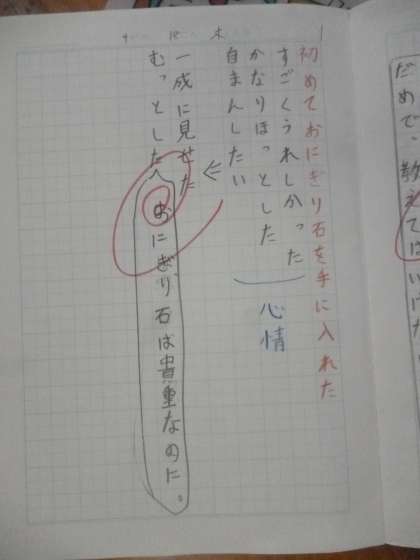 初めておにぎり石を手に入れた
すごくうれしかった
かなりほっとした
自まんしたい
心情
一成に見せた
むっとした
おにぎり石は貴重なのに。